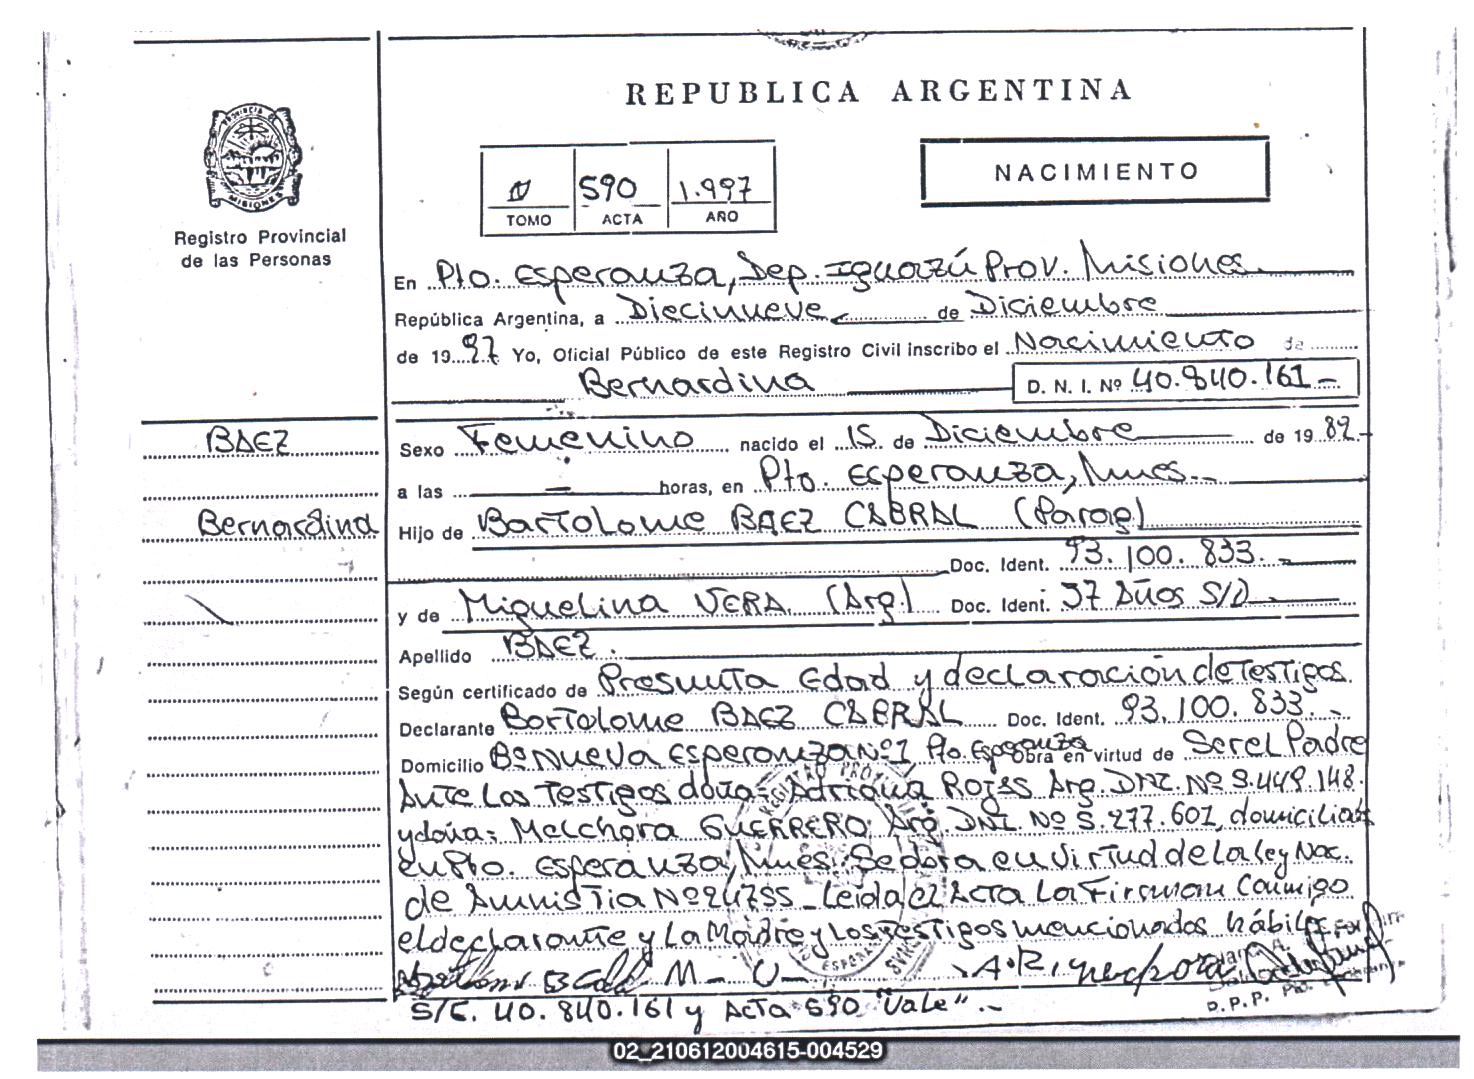 REPUBLICA ARGENTINA
PROVINCIA DE
MISIONES
Registro Provincial
de las Personas
590 1.997
TOMO ACTA AÑO
NACIMIENTO
En Pto. Esperanza, Dep. Iguazú Prov. Misiones
República Argentina, a Diecinueve de Diciembre
de 1997 Yo, Oficial Público de este Registro Civil inscribo el Nacimiento de
Bernardina D. N. I. Nº 40.840.161-
BAEZ
Bernardina
Sexo Femenino nacido el 15 de Diciembre de 1982-
a las — horas, en Pto. Esperanza, Mnes.-
Hijo de Bartolome BAEZ CABRAL (Parag)
Doc. Ident. 93.100.833.-
y de Miguelina VERA (Arg.) Doc. Ident. 37 Años S/D
Apellido BAEZ.
Según certificado de Presunta Edad y declaración de Testigos
Declarante Bartolome BAEZ CABRAL Doc. Ident. 93.100.833.-
Domicilio Bº Nueva Esperanza Nº 1 Pto. Esperanza Obra en virtud de Ser el Padre
Ante Los Testigos doña: Adriana Rojas Arg. DNI. Nº 9.449.148.
y doña: Melchora GUERRERO Arg. DNI Nº 5.277.601, domicilias
en Pto. Esperanza, Mnes. Se obra en Virtud de la Ley Nac.
de Amnistia Nº 24755 - Leida el Acta La Firman Conmigo
el declarante y La Madre y Los Testigos mencionados hábiles
M- V- A.R.
S/E. 40.840.161 y Acta 590 "Vale".-
02_210612004615-004529